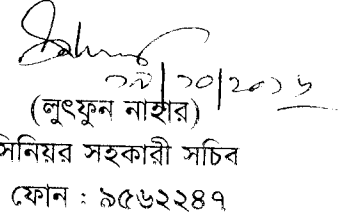 ১৯/১০/২০১৬
(লুৎফুন নাহার)
সিনিয়র সহকারী সচিব
ফোন : ৯৫৬২২৪৭